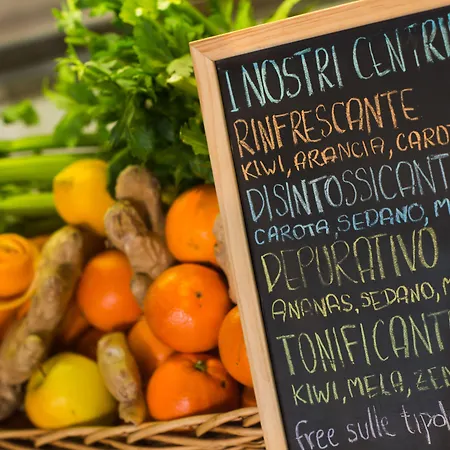 I NOSTRI CENTRI
RINFRESCANTE
KIWI, ARANCIA, CAROT
DISINTOSSICANT
CAROTA, SEDANO, M
DEPURATIVO
ANANAS, SEDANO, M
TONIFICANTE
KIWI, MELA, ZEN
free sulle tipol